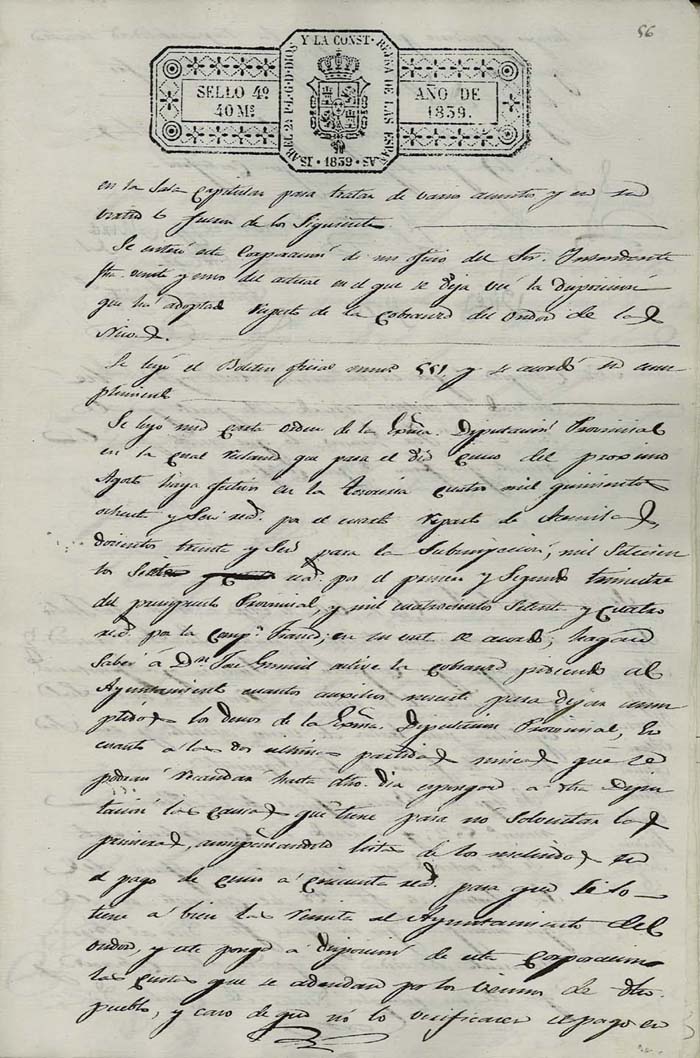 56
ISABEL 2ª P.L.G.D.DIOS Y LA CONST. REINA DE LAS ESPAÑAS
SELLO 4º
40 Ms
AÑO DE
1839.
· 1839 ·
en la Sala Capitular para tratar de varios asuntos y en su
virtud lo fueron de los Siguientes
Se enteró esta Corporacion de un oficio del Sor. Yntendente
fha veinte y uno del actual en el que se deja ver la Disposicion
que há adoptado respecto de la Cobranza del Ondon de las
Se leyó el Boletin oficial numo 551. y se acordó su cum
plimiento
Se leyó una Carta orden de la Exma. Diputacion Provincial
en la cual reclama que para el dia Cinco del procsimo
Agosto haya efectivos en la tesoreria cuatro mil quinientos
ochenta y Seis rs. por el cuarto reparto de
doscientos treinta y Seis para la Subinspeccion, mil Setecien
tos rs. por el primero y Segundo trimestre
del presupuesto Provincial, y mil cuatrocientos Setenta y Cuatro
rs. por la Compª. franca; en su vista se acordó, hagase
Saber á Dn. José active la cobranza pidiendo al
Ayuntamiento cuantos auxilios necesite para dejar cum
plidos los deseos de la Exma. Diputacion Provincial, En
cuanto a las dos ultimas partidas que se
podran recaudar hasta dho. dia espongase a dha Dipu
tacion las causas que tiene para no Solventar las
primeras, acompañandole lista de los
el pago de Cinco á Cincuenta rs. para que Si lo
tiene á bien las remita al Ayuntamiento del
Ondon, y este ponga a disposicion de esta Corporacion
las cuotas que se adeudan por los vecinos de dho.
pueblo, y caso de que no lo verificaren el pago en